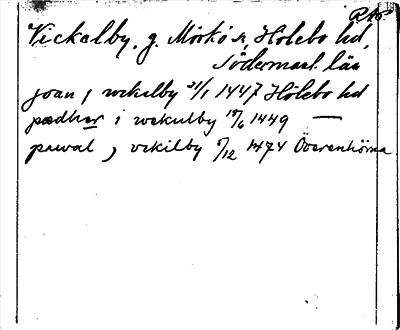 RAp
Vickelby, g. Mörkö sn, Hölebo hd,
Södermanl. län
joan j wekelby 21/1 1447 Hölebo hd
pædhar i wekulby 15/6 1449 —
pawal j vekilby 5/12 1474 Överenhörna